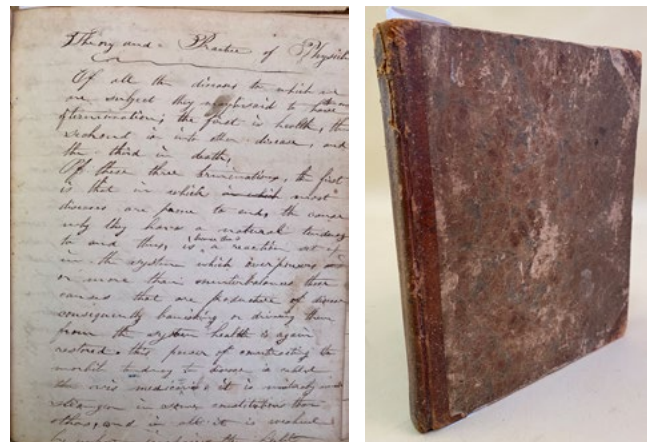 Theory and Practice of Physick
Of all the diseases to which we
are subject they may be said to have
terminations; the first is health, the
second is into other disease, and
the third in death,
Of these three terminations, the first
is that in which in which most
diseases are prone to end, the cause
why they have a natural tendency
to end thus, is because there is a reaction set up
in the system which overpowers
or more than counterbalances those
causes that are productive of disease
consequently banishing or driving them
from the system health is again
restored. this power of counteracting the
morbid tendency to disease is called
the vis medicatrix it is
stronger in some constitutions than
others, and in all it is